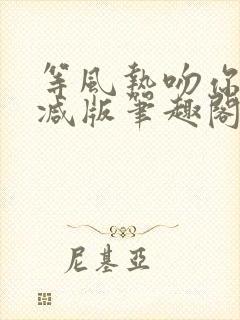 等風熱吻你
減版筆趣閣
尼基亞